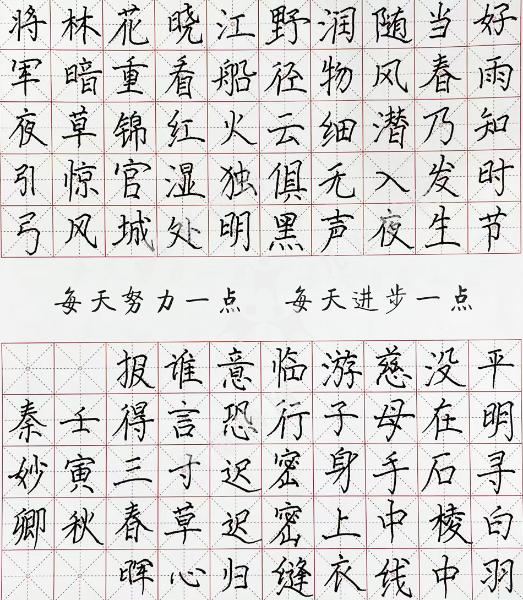 好雨知时节
当春乃发生
随风潜入夜
润物细无声
野径云俱黑
江船火独明
晓看红湿处
花重锦官城
林暗草惊风
将军夜引弓
每天努力一点 每天进步一点
平明寻白羽
没在石棱中
慈母手中线
游子身上衣
临行密密缝
意恐迟迟归
谁言寸草心
报得三春晖
壬寅秋
秦妙卿